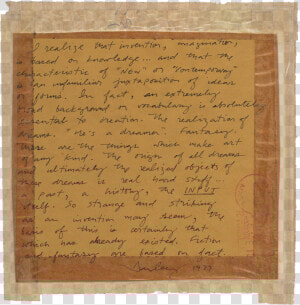 I realize that invention, imagination,
is based on knowledge... and that the
characteristic of "NOW" or "Contemporary"
is an unfamiliar juxtaposition of ideas
or forms. In fact, an extremely
background or vocabulary is absolutely
essential to creation. The realization of
dreams. "He's a dreamer". Fantasy.
these are the things which make art
of any kind. The origin of all dreams
and ultimately the realized objects of
these dreams is real hard stuff...
fact, a history, the INPUT
itself. So strange and striking
as an invention may seem, the
basis of this is certainly that
which has already existed. Fiction
and fantasy are based on fact.
1973